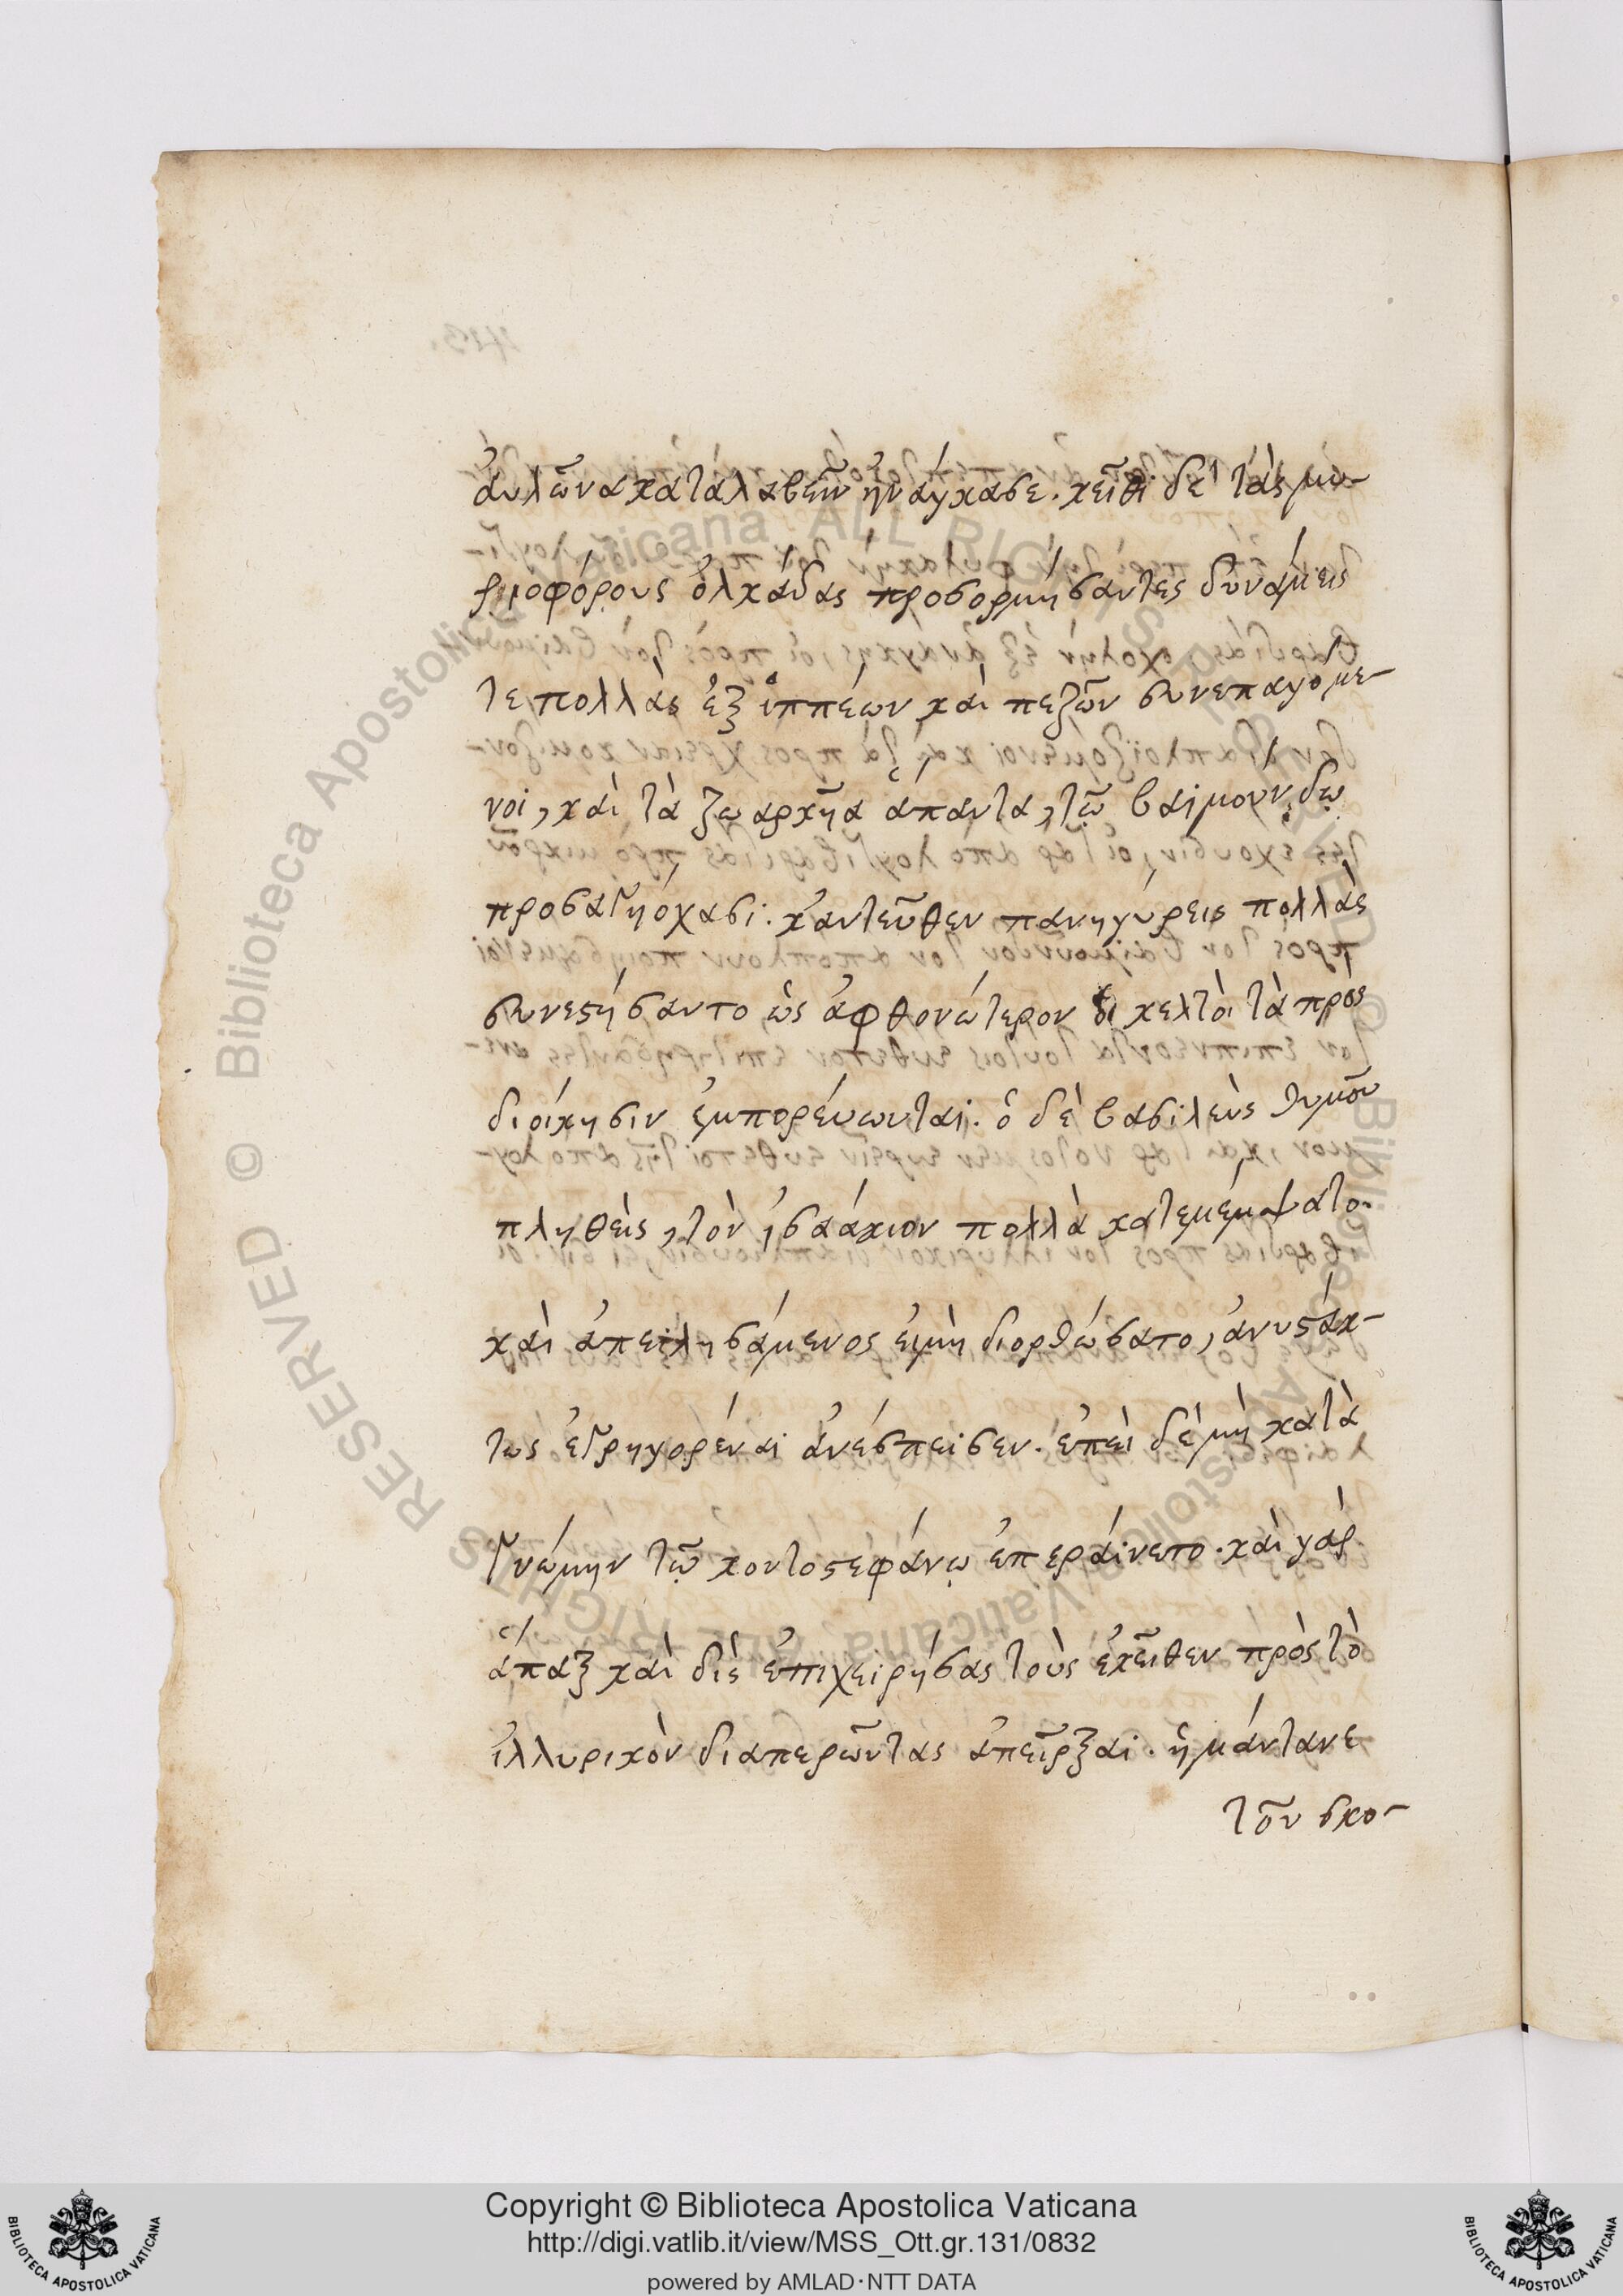 ἀυλῶνα καταλαβεῖν ἠνάγκασε. κεῖθι δὲ τὰς μυ-
ριοφόρους ὁλκάδας προσορμήσαντες δυνάμεις
τε πολλὰς ἐξ ἱππέων καὶ πεζῶν συνεπαγομε-
νοι, καὶ τὰ ζωαρκῆα ἅπαντα, τῷ βαϊμούνδῳ
προσαγηόχασι. κἀντεῦθεν πανηγύρεις πολλὰς
συνεστήσαντο ὡς ἀφθονώτερον οἱ κελτοὶ τὰ πρὸς
διοίκησιν ἐμπορέυωνται. ὁ δὲ βασιλεὺς θυμοῦ
πληθεὶς, τὸν ἰσαάκιον πολλὰ κατεμέμψατο.
καὶ ἀπειλησάμενος ἐιμὴ διορθώσατο, ἀνυστάκ-
τως ἐγρηγορέναι ἀνέσπεισεν. ἐπεὶ δὲ μὴ κατὰ
γνώμην τῷ κοντοστεφάνῳ ἐπεράινετο. καὶ γὰρ
ἅπαξ καὶ δὶς ἐπιχειρήσας τοὺς ἐκεῖθεν πρὸς τὸ
ἰλλυρικὸν διαπερῶντας ἀπεῖρξαι. ἡμάντανε
τοῦ σκο-
Copyright © Biblioteca Apostolica Vaticana
http://digi.vatlib.it/view/MSS_Ott.gr.131/0832
powered by AMLAD·NTT DATA
BIBLIOTECA APOSTOLICA VATICANA
BIBLIOTECA APOSTOLICA VATICANA
© Biblioteca Apostolica Vaticana ALL RIGHTS RESERVED
© Biblioteca Apostolica Vaticana ALL RIGHTS RESERVED